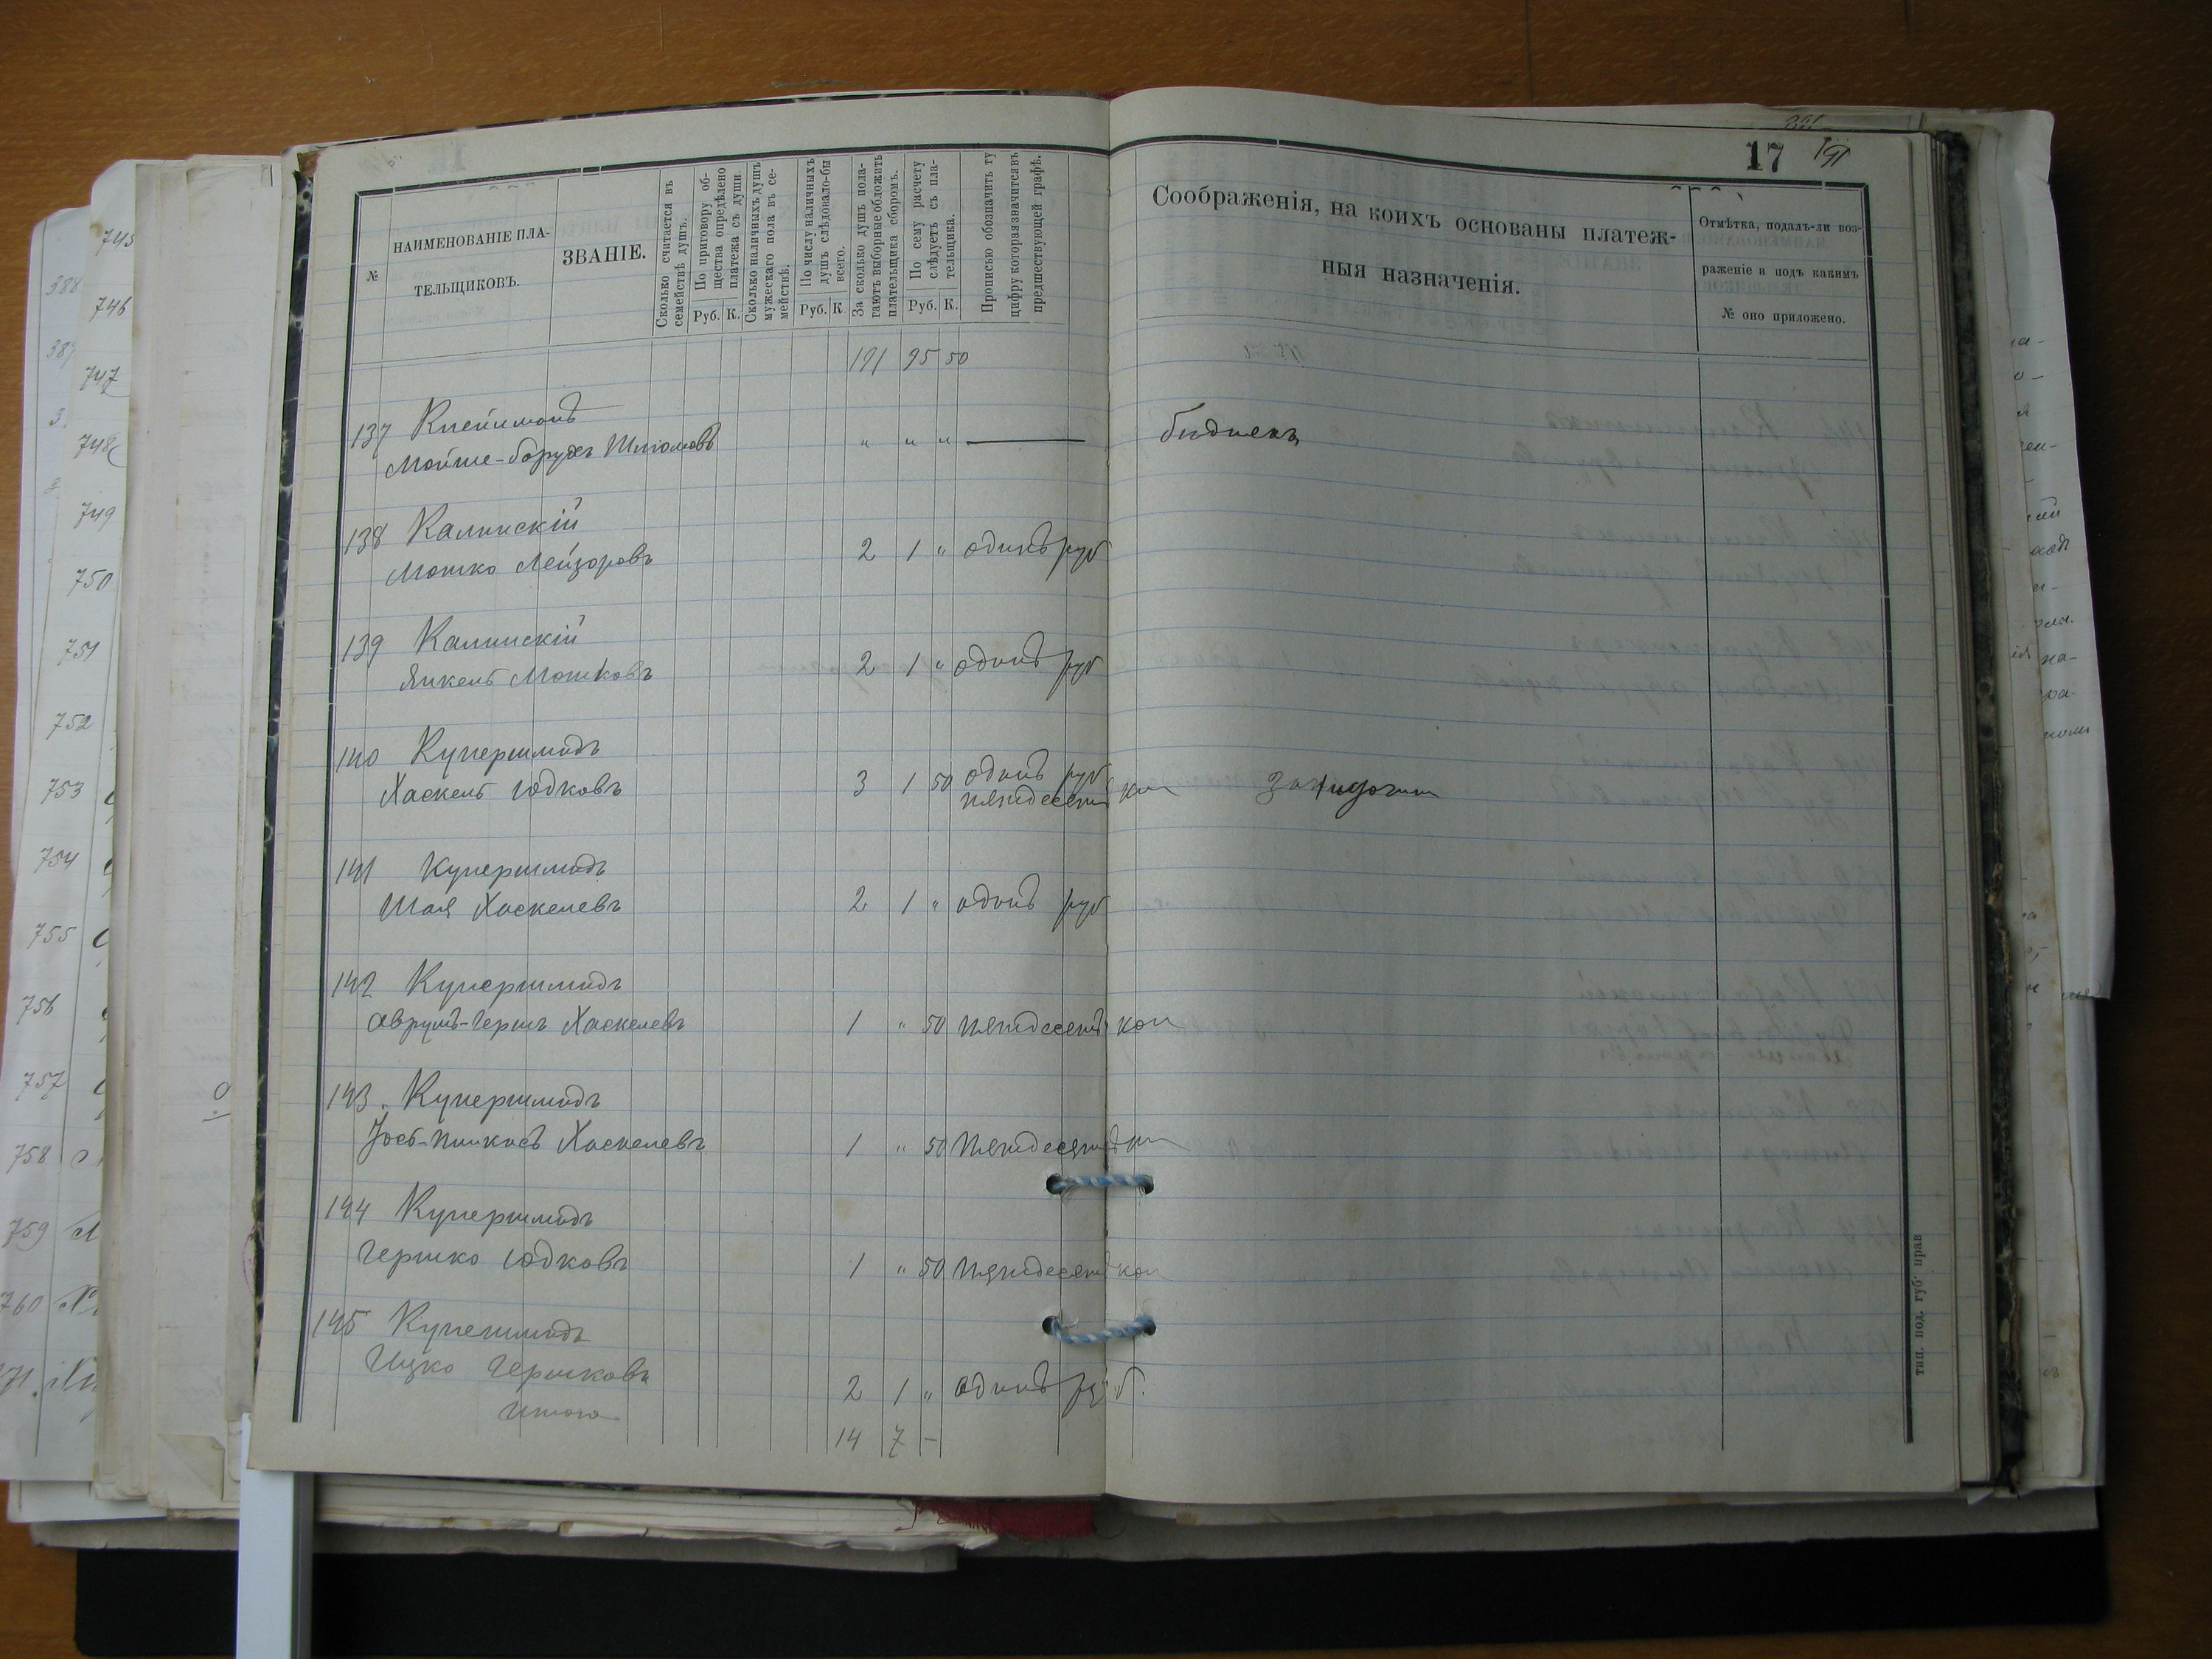 17
№
НАИМЕНОВАНІЕ ПЛА-
ТЕЛЬЩИКОВЪ.
ЗВАНІЕ.
Сколько считается въ
семействѣ душъ.
По приговору об-
щества опредѣлено
платежа съ души.
Руб. К.
Сколько наличныхъ душъ
мужескаго пола въ се-
мействѣ.
По числу наличныхъ
душъ слѣдовало-бы
всего.
Руб. К.
За сколько душъ пола-
гаютъ выборные обложить
плательщика сборомъ.
По сему расчету
слѣдуетъ съ пла-
тельщика.
Руб. К.
Прописью обозначить ту
цифру которая значится въ
предшествующей графѣ.
Соображенія, на коихъ основаны платеж-
ныя назначенія.
Отмѣтка, подалъ-ли воз-
раженіе и подъ какимъ
№ оно приложено.
191 95 50
137 Клейманъ
Мойше-Борухъ Шлиомовъ " " " бидненъ
138 Калинскій
Мошко Лейзоровъ 2 1 " одинъ руб
139 Калинскій
Янкель Мошковъ 2 1 " одинъ руб
140 Купершмидъ
Хаскель Юдковъ 3 1 50 одинъ руб
пятдесятъ коп
141 Купершмидъ
Шая Хаскелевъ 2 1 " одинъ руб
142 Купершмидъ
Аврумъ-Гершъ Хаскелевъ 1 " 50 пятдесятъ коп
143 Купершмидъ
Пинкасъ Хаскелевъ 1 " 50 пятдесятъ коп
144 Купершмидъ
Гершко Юдковъ 1 " 50 пятдесятъ коп
145 Купершмидъ
Ицко Гершковъ 2 1 " одинъ руб.
Итого 14 7 -
тип. под. губ. прав
745
388
746
747
748
749
750
751
752
753
754
755
756
757
758
759
760